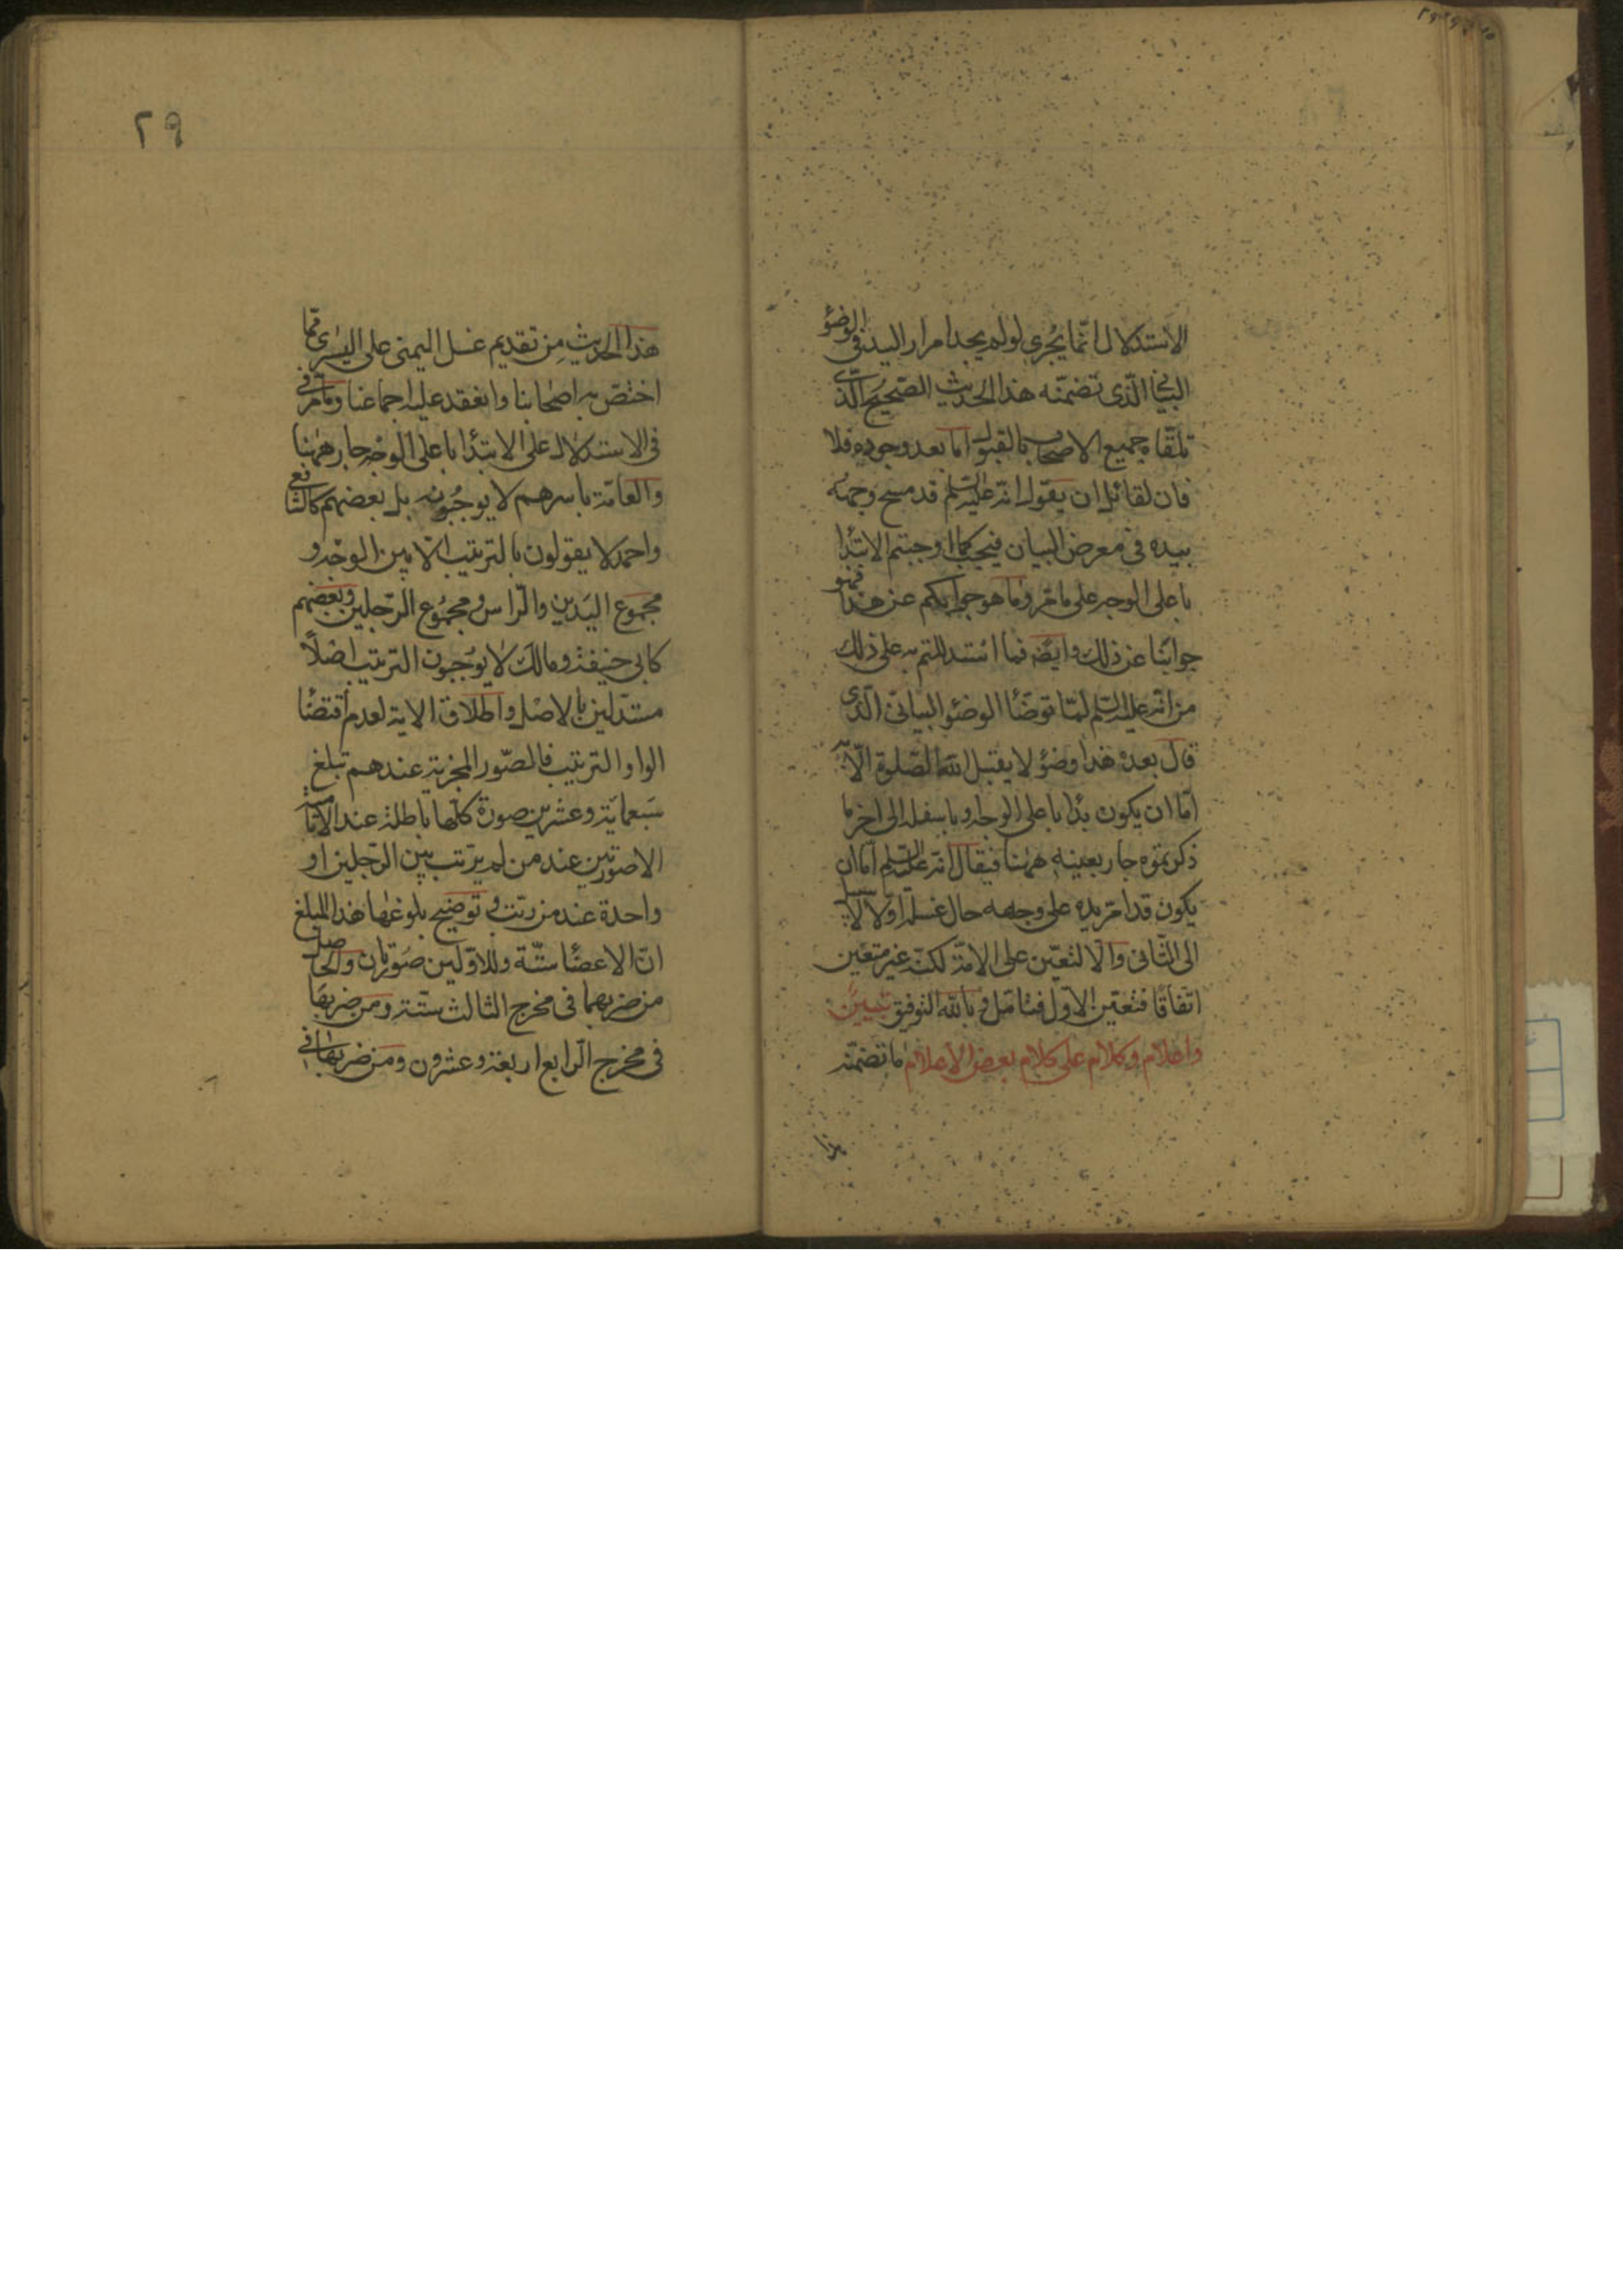 الاستدلال انما يجرى لو لم يوجد امرار اليد فى الوضوء
البيانى الذى تضمنه هذا الحديث الصحيح الذى
تلقاه جميع الاصحاب بالقبول اما بعد وجوده فلا
فان لقائل ان يقول انه عليه السلم قد مسح وجهه
بيده فى معرض البيان فيجب كما اوجبتم الابتدا
باعلى الوجه على ما مر وما هو جوابكم عن هذا فهو
جوابنا عن ذلك وايضا فما استدللتم به على ذلك
من انه عليه السلم لما توضأ الوضوء البيانى الذى
قال بعده هذا وضوء لا يقبل الله الصلوة الا به
اما ان يكون بدأ باعلى الوجه او باسفله الى اخر ما
ذكرتموه جار بعينه ههنا فيقال انه عليه السلم اما ان
يكون قد امر يده على وجهه حال غسله او لا لا سبيل
الى الثانى والا لتعين على الامة لكنه غير متعين
اتفاقا فتعين الاول فتامل وبالله التوفيق تبيين
واعلام وكلام على كلام بعض الاعلام ما تضمنه
هذا
٢٩
هذا الحديث من تقديم غسل اليمنى على اليسرى مما
اختص به اصحابنا وانعقد عليه اجماعنا وما مر فى
فى الاستدلال على الابتدا باعلى الوجه جار ههنا
والعامة باسرهم لا يوجبونه بل بعضهم كالشافعى
واحمد لا يقولون بالترتيب الا بين الوجه و
مجموع اليدين والراس ومجموع الرجلين وبعضهم
كابى حنيفة ومالك لا يوجبون الترتيب اصلاً
مستدلين بالاصل واطلاق الاية لعدم اقتضا
الواو الترتيب فالصور المجزية عندهم تبلغ
سبعمائة وعشرين صورة كلها باطلة عند الامامية
الا صورتين عند من لم يرتب بين الرجلين او
واحدة عند من رتب وتوضيح بلوغها هذا المبلغ
ان الاعضا ستة وللاولين صورتان والحاصل
من ضربهما فى مخرج الثالث ستة ومن ضربها
فى مخرج الرابع اربعة وعشرون ومن ضربها فى